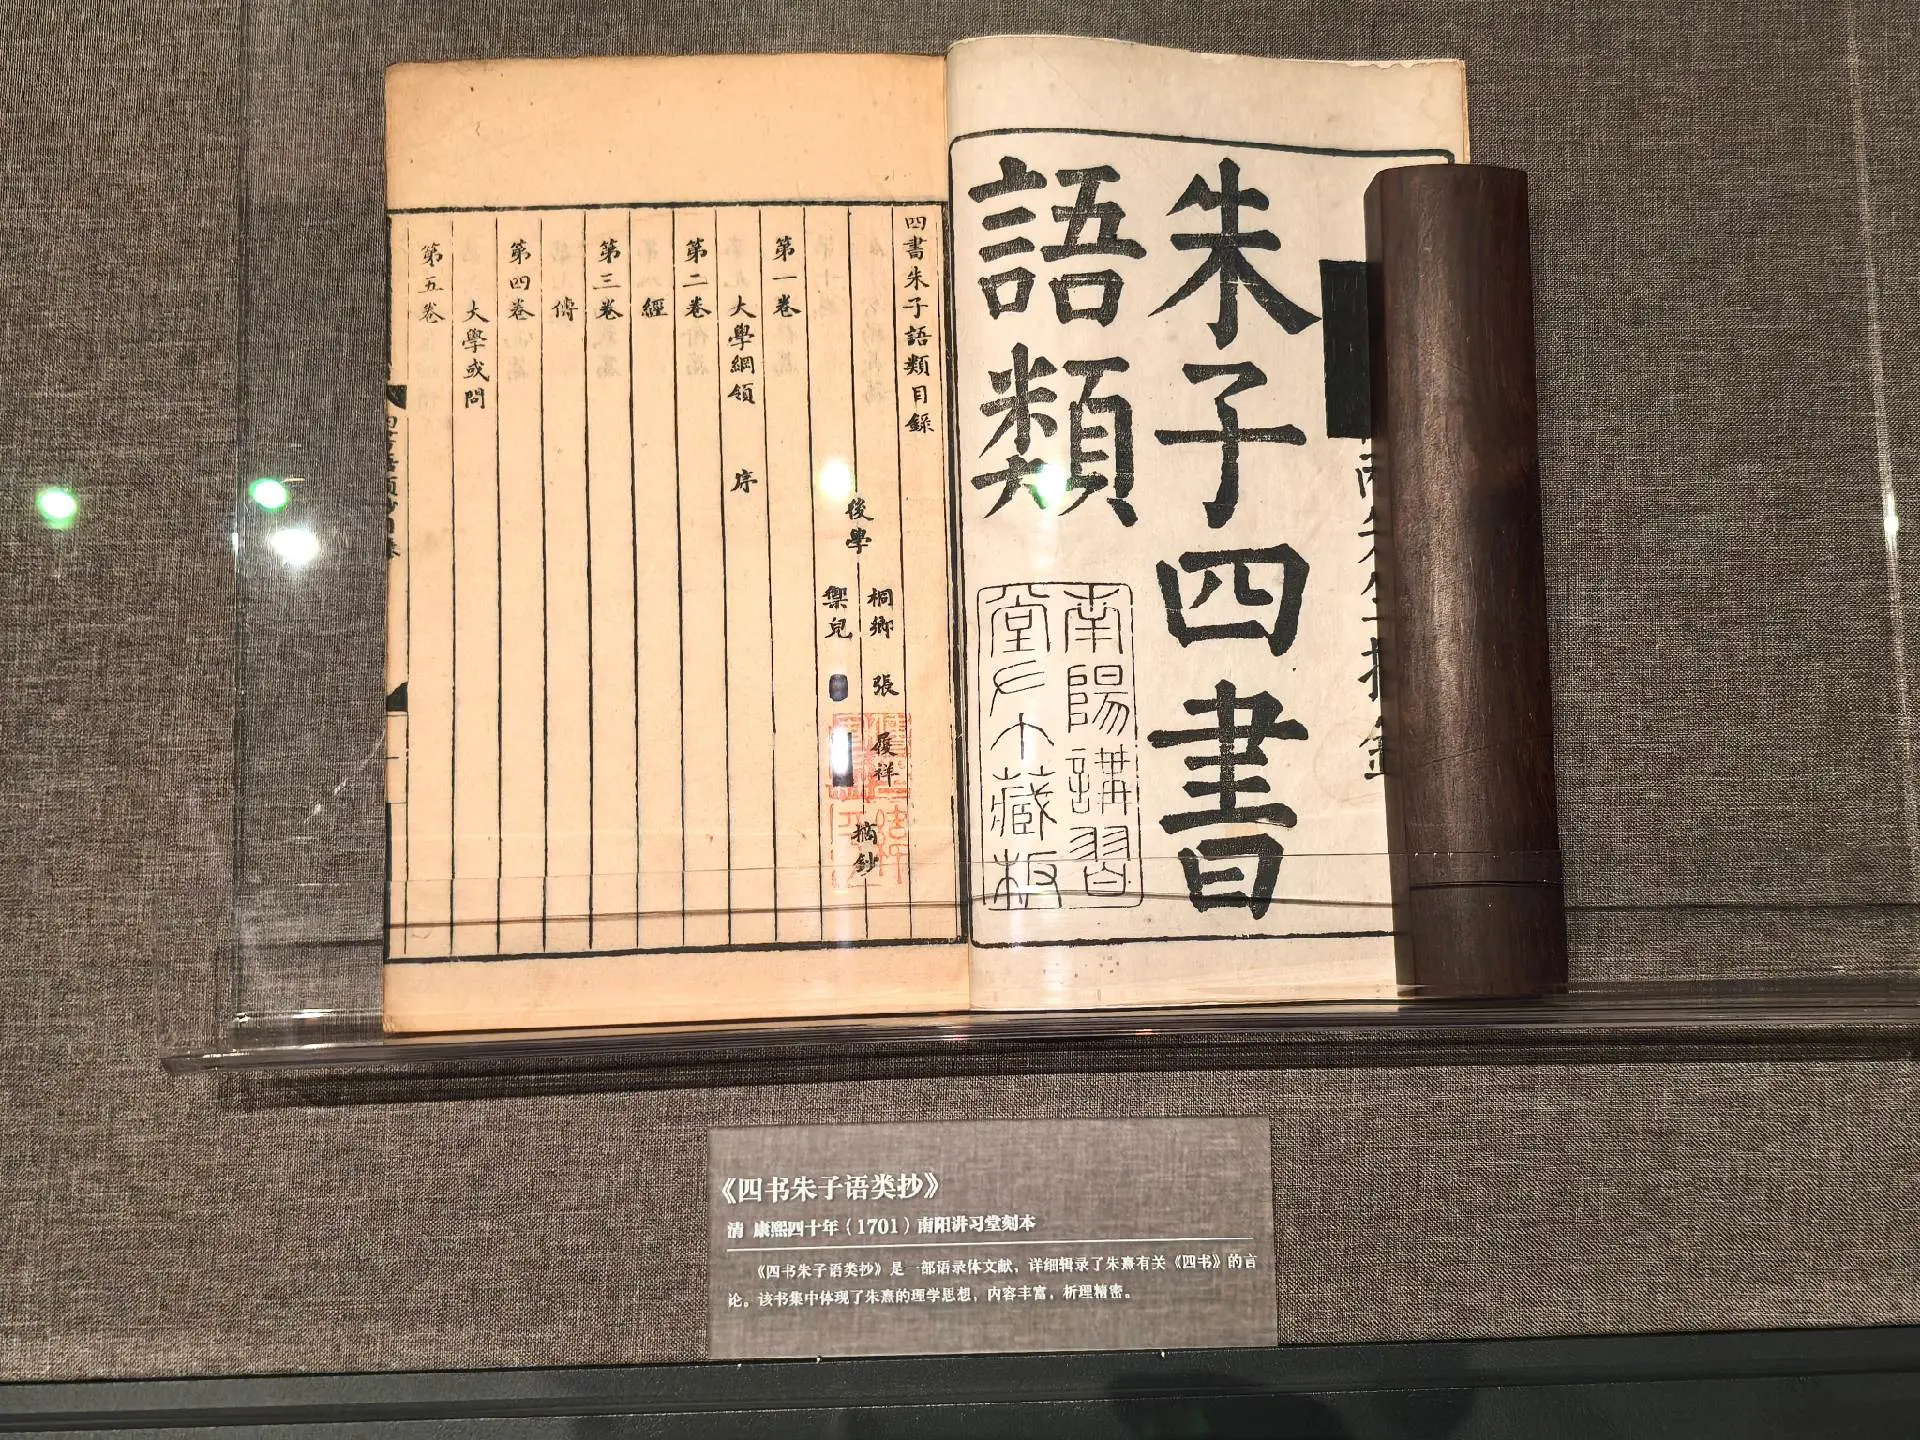 朱子四書
語類
南陽講習
堂藏板
四書朱子語類目錄
後學
桐鄉 張履祥
禦兒
摘鈔
第一卷
大學綱領 序
第二卷
經
第三卷
傳
第四卷
大學或問
第五卷
《四书朱子语类抄》
清 康熙四十年（1701）南阳讲习堂刻本
《四书朱子语类抄》是一部语录体文献，详细辑录了朱熹有关《四书》的言
论。该书集中体现了朱熹的理学思想，内容丰富，析理精密。